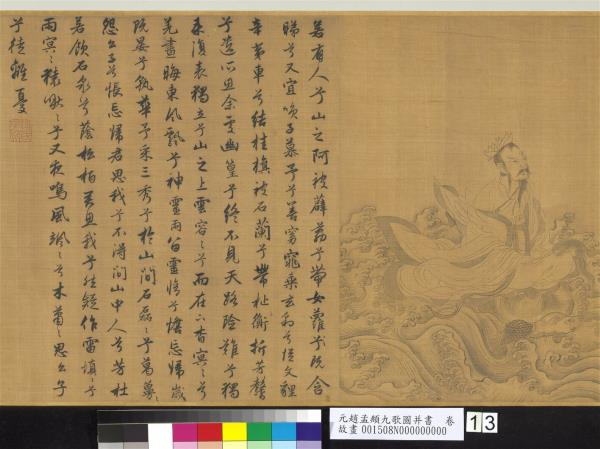 若有人兮山之阿被薜荔兮帶女蘿兮既含
睇兮又宜笑子慕予兮善窈窕乘赤豹兮從文貍
辛夷車兮結桂旗被石蘭兮帶杜衡折芳馨
兮遺所思余處幽篁兮終不見天路險難兮獨
來後表獨立兮山之上雲容〻兮而在下杳冥〻兮
羌晝晦東風飄兮神靈雨留靈脩兮憺忘歸歲
既晏兮孰華予采三秀兮於山間石磊〻兮葛蔓〻
怨公子兮悵忘歸君思我兮不得閒山中人兮芳杜
若飲石泉兮蔭松柏君思我兮然疑作雷填〻兮
雨冥〻猿啾〻兮又夜鳴風颯〻兮木蕭〻思公子
兮徒離憂
元趙孟頫九歌圖并書 卷
故畫001508N000000000
13